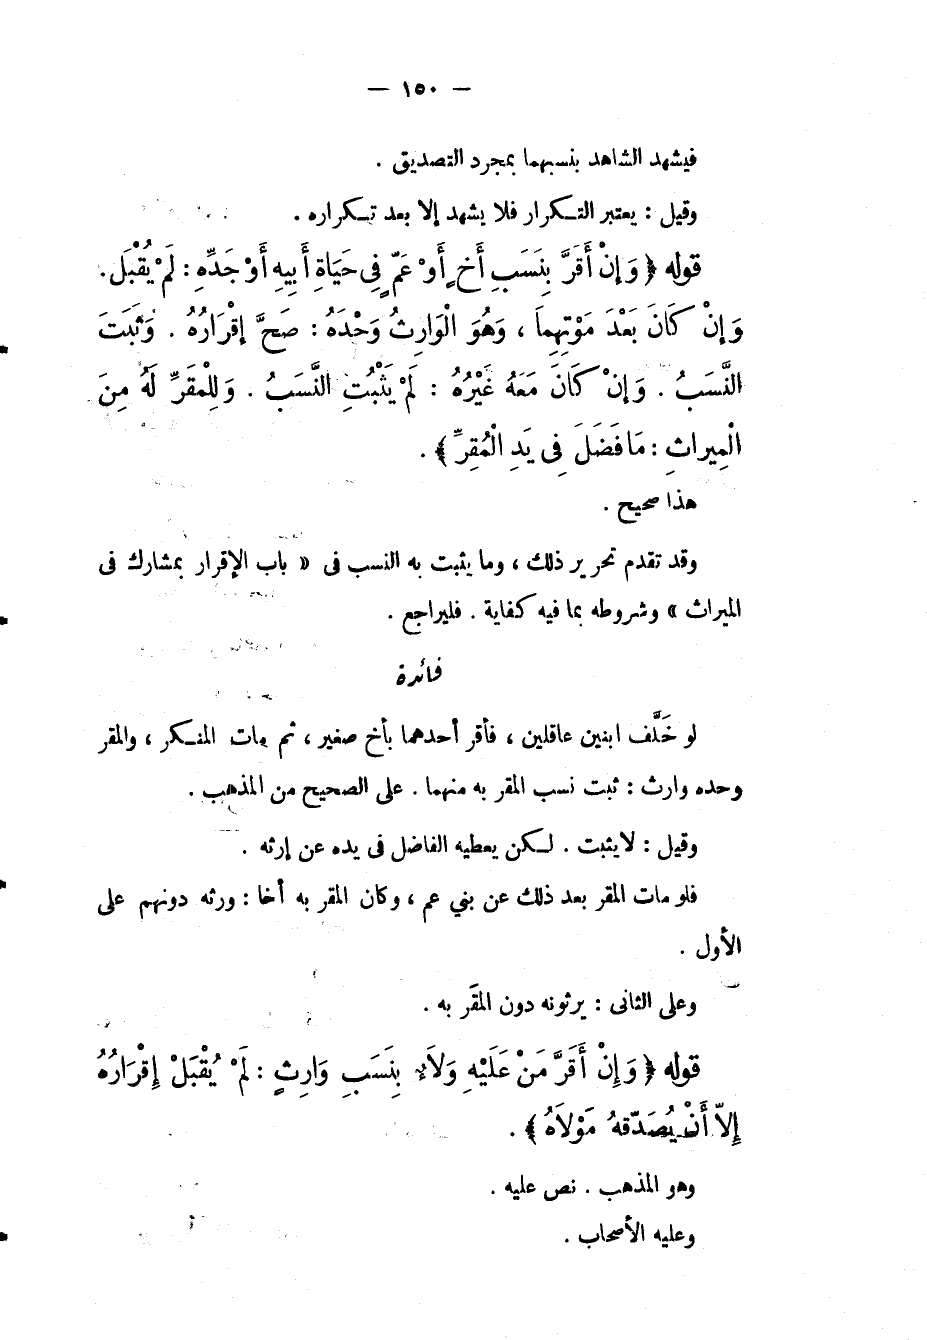 — ١٥٠ —
فيشهد الشاهد بنسبهما بمجرد التصديق .
وقيل : يعتبر التكرار فلا يشهد إلا بعد تكراره .
قوله ﴿ وَإِنْ أَقَرَّ بِنَسَبِ أَخٍ أَوْ عَمٍّ فِي حَيَاةِ أَبِيهِ أَوْ جَدِّهِ : لَمْ يُقْبَل .
وَإِنْ كَانَ بَعْدَ مَوْتِهِمَا ، وَهُوَ الْوَارِثُ وَحْدَهُ : صَحَّ إِقْرَارُهُ . وَثَبَتَ
النَّسَبُ . وَإِنْ كَانَ مَعَهُ غَيْرُهُ : لَمْ يَثْبُتِ النَّسَبُ . وَلِلْمُقَرِّ لَهُ مِنَ
الْمِيرَاثِ : مَا فَضَلَ فِي يَدِ الْمُقِرِّ ﴾ .
هذا صحيح .
وقد تقدم تحرير ذلك ، وما يثبت به النسب فى « باب الإقرار بمشارك فى
الميراث » وشروطه بما فيه كفاية . فليراجع .
فائدة
لو خَلَّف ابنين عاقلين ، فأقر أحدهما بأخ صغير ، ثم مات المنكر ، والمقر
وحده وارث : ثبت نسب المقر به منهما . على الصحيح من المذهب .
وقيل : لا يثبت . لكن يعطيه الفاضل فى يده عن إرثه .
فلو مات المقر بعد ذلك عن بني عم ، وكان المقر به أخا : ورثه دونهم على
الأول .
وعلى الثانى : يرثونه دون المقَر به .
قوله ﴿ وَإِنْ أَقَرَّ مَنْ عَلَيْهِ وَلَاءٌ بِنَسَبِ وَارِثٍ : لَمْ يُقْبَلْ إِقْرَارُهُ
إِلاَّ أَنْ يُصَدِّقَهُ مَوْلَاهُ ﴾ .
وهو المذهب . نص عليه .
وعليه الأصحاب .